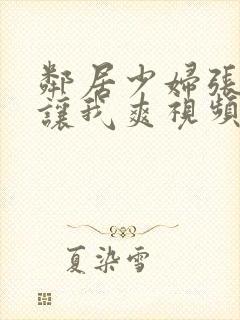 鄰居少婦張
讓我爽視頻
夏染雪